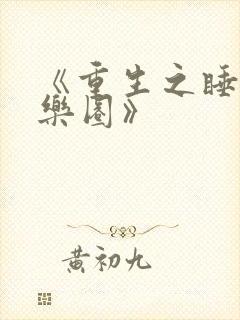 《重生之睡
樂園》
黄初九